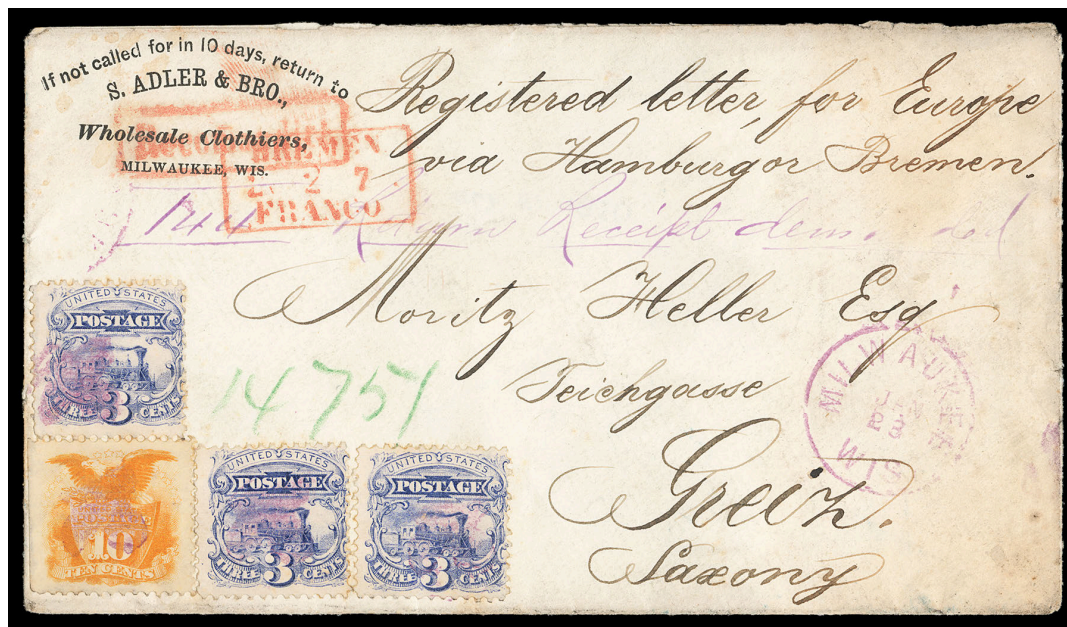 If not called for in 10 days, return to
S. ADLER & BRO.,
Wholesale Clothiers,
MILWAUKEE, WIS.
BREMEN
2 7
FRANCO
Registered letter, for Europe
via Hamburg or Bremen.
Return Receipt dem
Moritz Heller Esq
Teichgasse
Greiz.
Saxony
14751
MILWAUKEE
JAN
23
WIS
UNITED STATES
POSTAGE
THREE 3 CENTS
POSTAGE
10
TEN CENTS
UNITED STATES
POSTAGE
THREE 3 CENTS
UNITED STATES
POSTAGE
THREE 3 CENTS